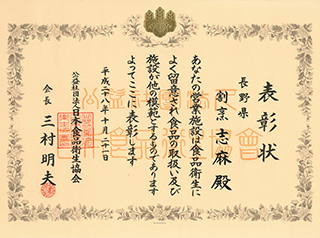 表彰状
長野県
割烹 志麻 殿
あなたの営業施設は食品衛生に
よく留意され食品の取扱い及び
施設が他の模範とするものであります
よってここに表彰します
平成二十八年十月二十一日
公益社団法人日本食品衛生協会
会長 三村明夫